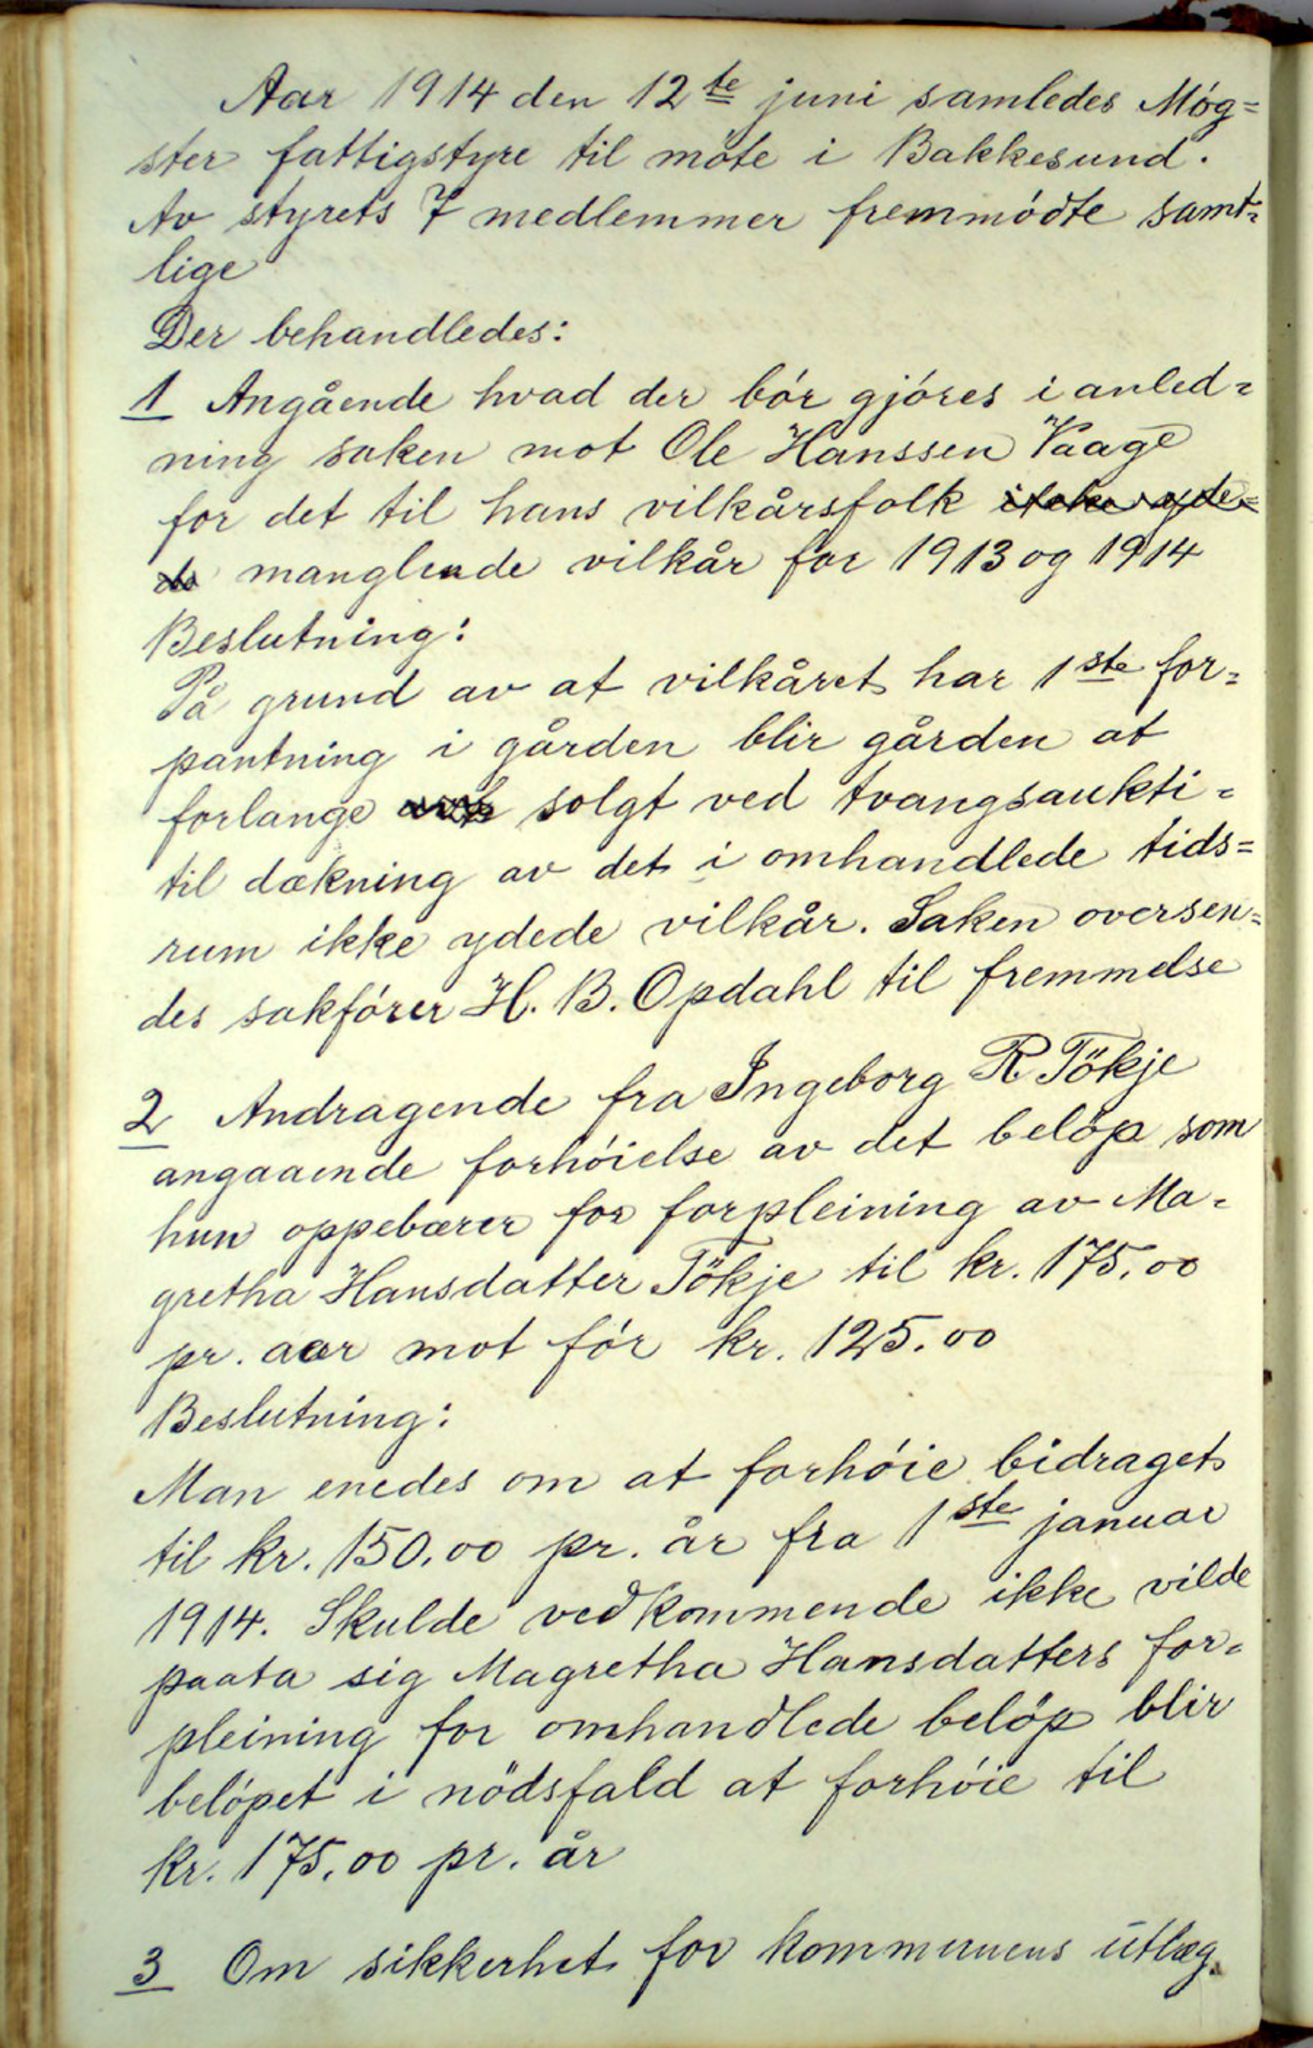 Aar 1914 den 12te juni samledes Møg=
ster fattigstyre til möte i Bakkesund.
Av styrets 7 medlemmer fremmødte samt=
lige
Der behandledes:
1 Angående hvad der bør gjøres i anled=
ning saken mot Ole Hanssen Vaage
for det til hans vilkårsfolk ikke yde=
de manglende vilkår for 1913 og 1914
Beslutning:
På grund av at vilkåret har 1ste for=
pantning i gården blir gården at
forlange solgt ved tvangsaukti=
til dækning av det i omhandlede tids=
rum ikke ydede vilkår. Saken oversen=
des sakfører H. B. Opdahl til fremmelse
2 Andragende fra Ingeborg R Tökje
angaaende forhøielse av det beløp som
hun oppebærer for forpleining av Ma=
gretha Hansdatter Tökje til kr. 175,00
pr. aar mot før kr. 125.00
Beslutning:
Man enedes om at forhøie bidraget
til kr. 150,00 pr. år fra 1ste januar
1914. Skulde vedkommende ikke vilde
paata sig Magretha Hansdatters for=
pleining for omhandlede beløp blir
beløpet i nödsfald at forhøie til
kr. 175,00 pr. år
3 Om sikkerhet for kommunens utlæg